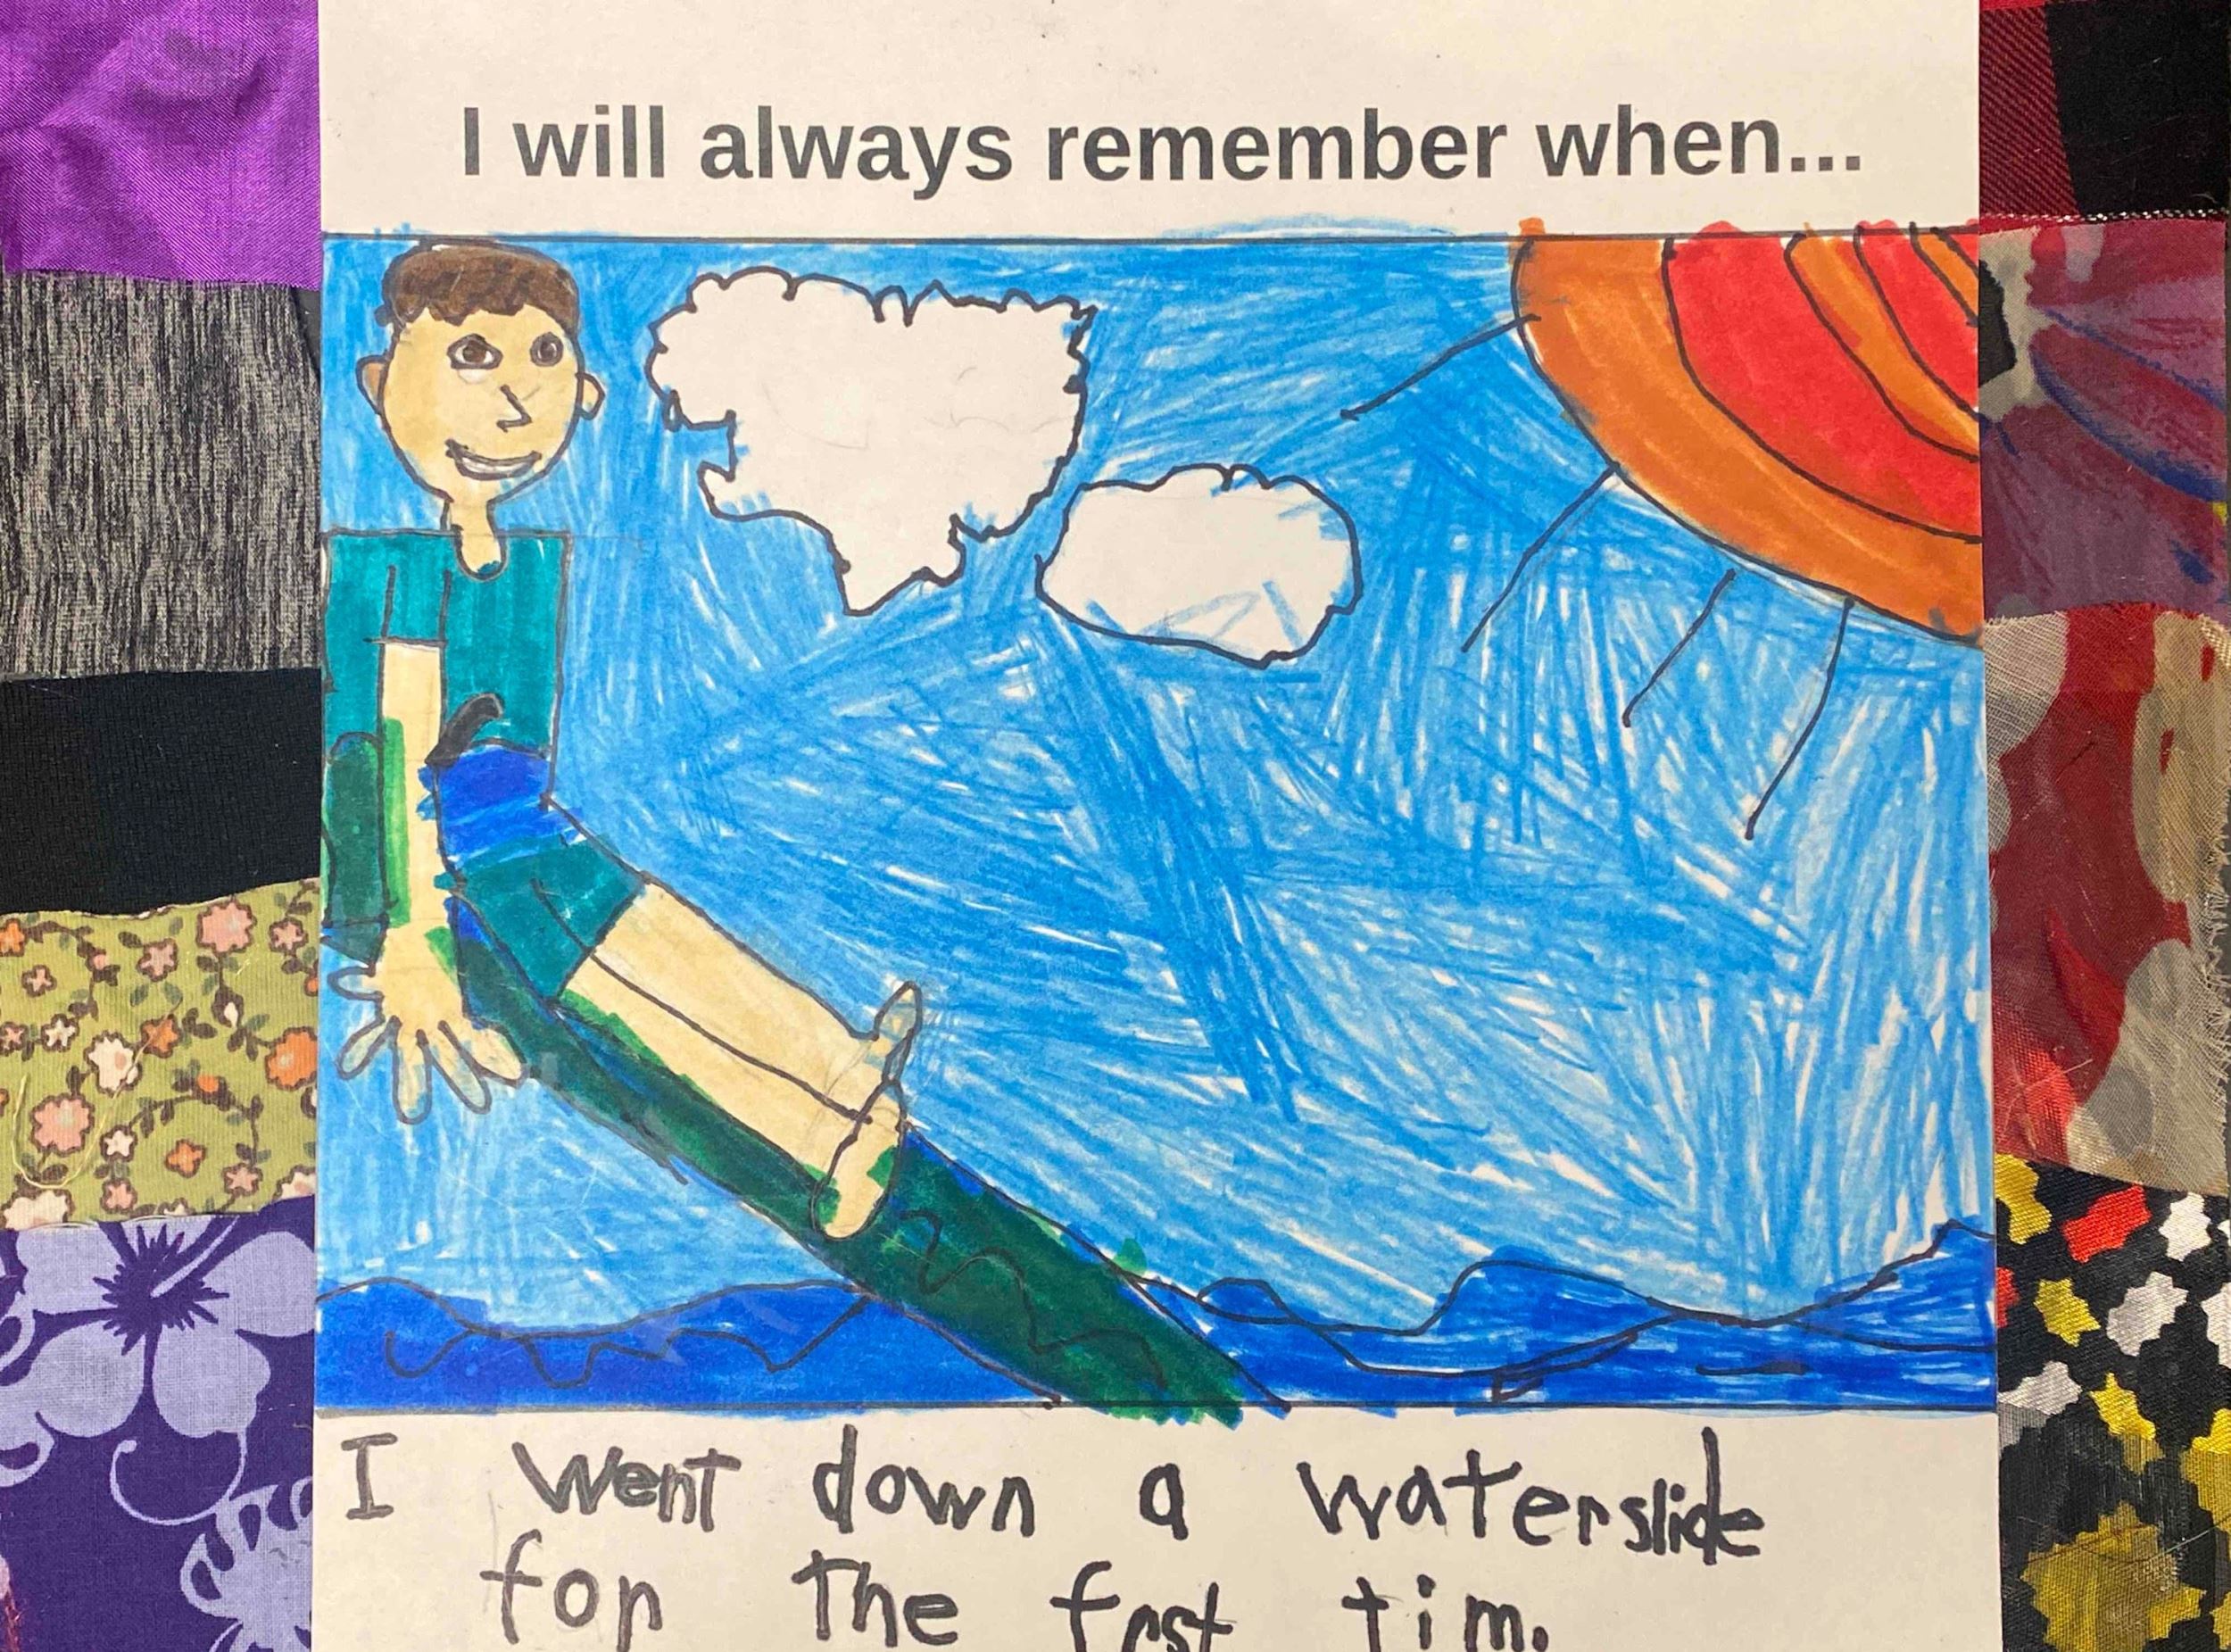 I will always remember when...
I went down a waterslide
for The frst tim.